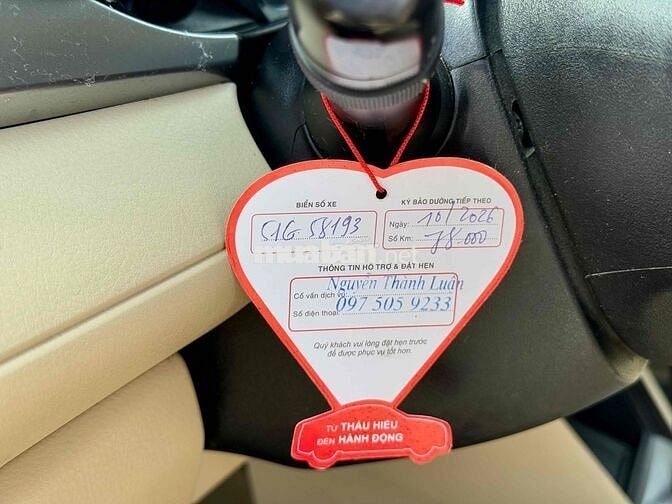 BIỂN SỐ XE
51G-58193
KỲ BẢO DƯỠNG TIẾP THEO
Ngày: 10/2026
Số Km: 78.000
muaban.net
THÔNG TIN HỖ TRỢ & ĐẶT HẸN
Cố vấn dịch vụ: Nguyễn Thành Luân
Số điện thoại: 097 505 9233
Quý khách vui lòng đặt hẹn trước
để được phục vụ tốt hơn.
TỪ THẤU HIỂU
ĐẾN HÀNH ĐỘNG